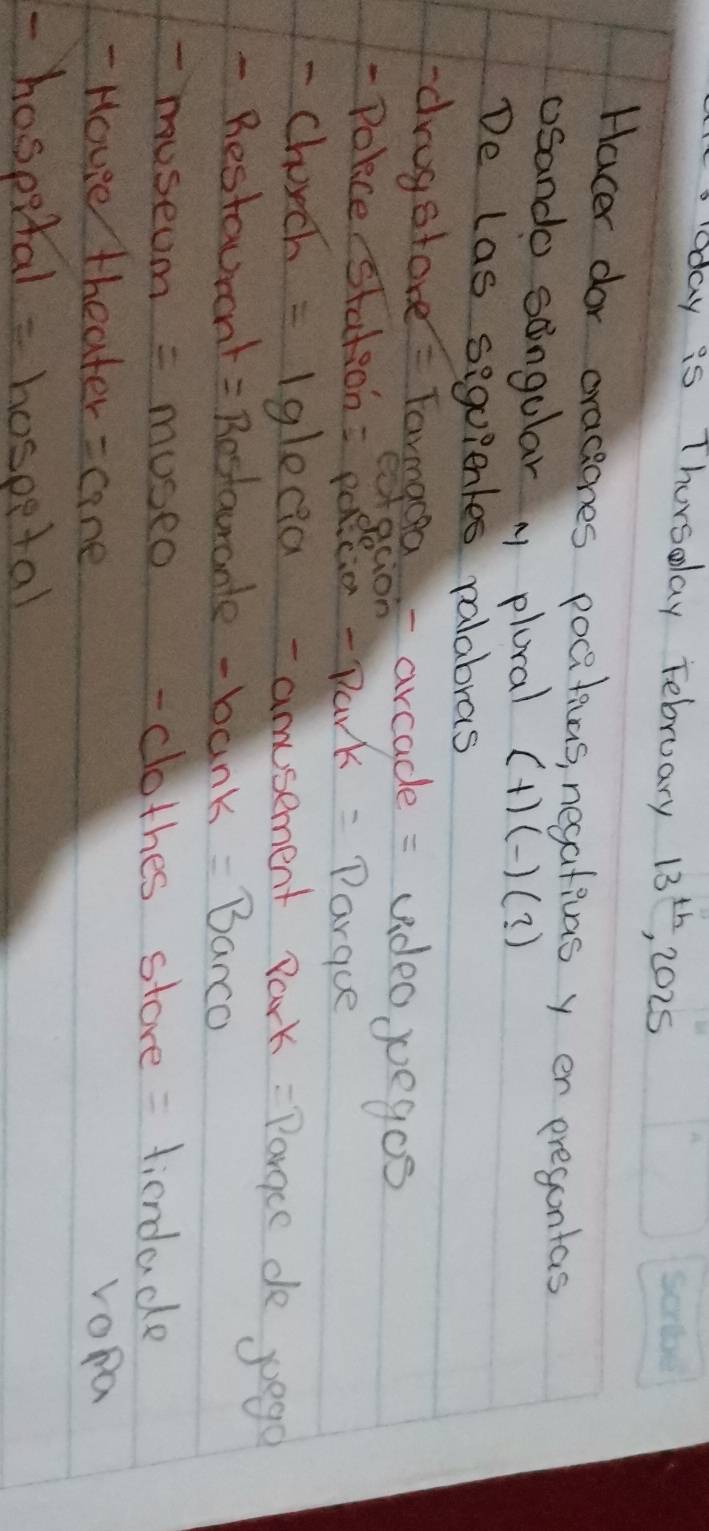 Today is Thursday February 13th, 2025
Hacer dor oraciones pocitivas, negativas y en pregontas
usando singular y plural (+) (-) (?)
De Las siguientes palabras
-drugstore = Farmacia - arcade = video juegos
-Police station = estacion de policia - Park = Parque
- Church = Iglecia - amusement Park = Parque de juego
- Restaurant = Restaurante - bank = Banco
- museum = museo - clothes store = tienda de ropa
- Movie theater = cine
- hospital = hospital